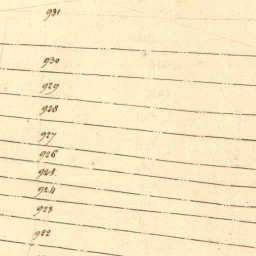 931
930
929
928
927
926
925
924
923
922